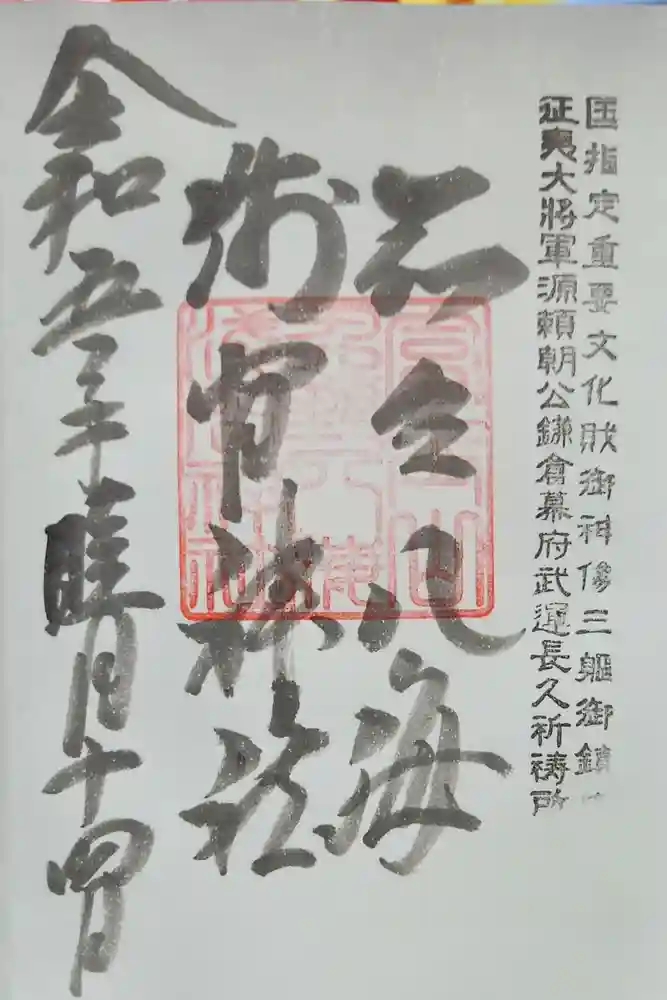 国指定重要文化財御神像三躯御鎮
征夷大将軍源頼朝公鎌倉幕府武運長久祈祷所
忍八海
浅間神社
令和五年睦月十四日